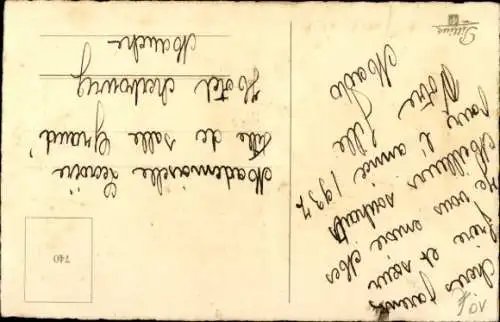 chers parents
frère et sœur
Je vous envoie mes
Meilleurs souhaits
pour l'année 1937
Votre fille
Mado
Mademoiselle
fille de salle Grand
Hotel cherbourg
Manche
740